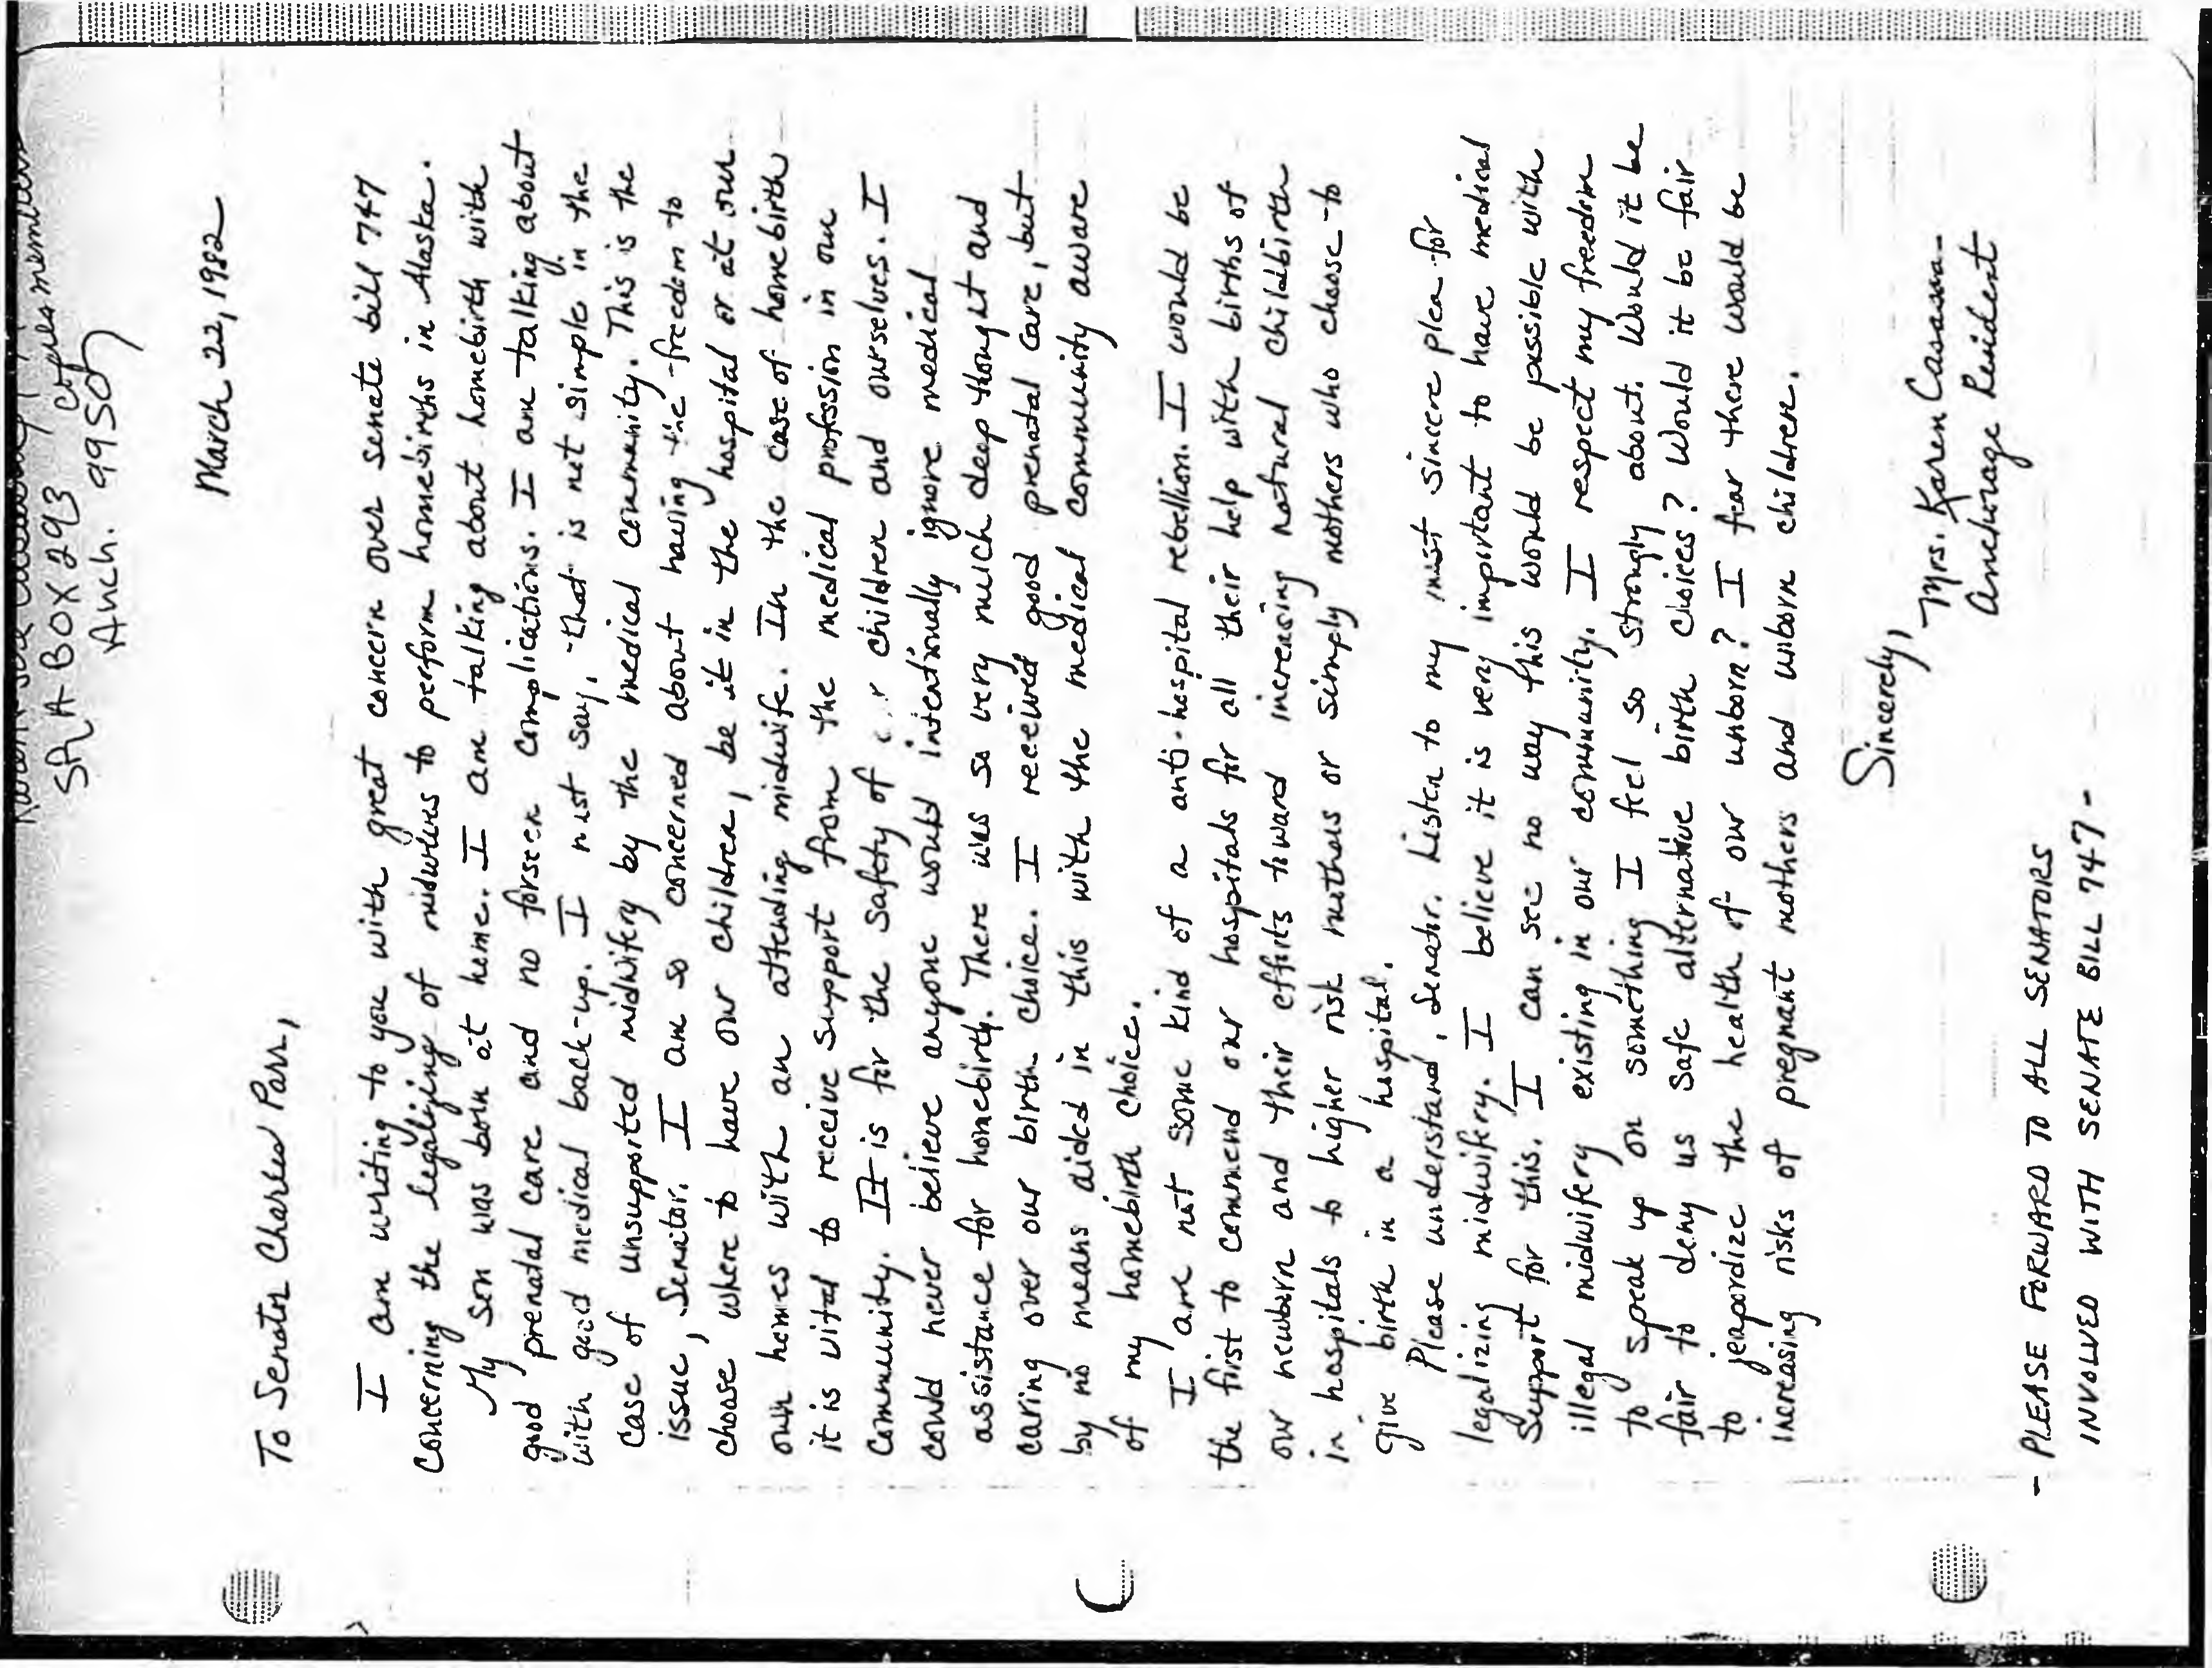 SRA BOX 293 copies members
Anch. 99507
March 22, 1982
To Senator Charles Parr,
I am writing to you with great concern over senate bill 747
concerning the legalizing of midwives to perform homebirths in Alaska.
My son was born at home. I am talking about homebirth with
good prenatal care and no forseen complications. I am talking about
with good medical back-up. I must say, that is not simple in the
case of unsupported midwifery by the medical community. This is the
issue, Senator. I am so concerned about having the freedom to
choose where to have our children, be it in the hospital or at our
own homes with an attending midwife. In the case of homebirth
it is vital to receive support from the medical profession in our
community. It is for the safety of our children and ourselves. I
could never believe anyone would intentionally ignore medical
assistance for homebirth. There was so very much deep thought and
caring over our birth choice. I received good prenatal care, but
by no means aided in this with the medical community aware
of my homebirth choice.
I am not some kind of a anti-hospital rebellion. I would be
the first to commend our hospitals for all their help with births of
our newborn and their efforts toward increasing natural childbirth
in hospitals to higher risk mothers or simply mothers who choose to
give birth in a hospital.
Please understand, Senator. Listen to my most sincere plea for
legalizing midwifery. I believe it is very important to have medical
support for this. I can see no way this would be possible with
illegal midwifery existing in our community. I respect my freedom
to speak up on something I feel so strongly about. Would it be
fair to deny us safe alternative birth choices? Would it be fair
to jeapordize the health of our unborn? I fear there would be
increasing risks of pregnant mothers and unborn children.
Sincerely,
Mrs. Karen Casanova
Anchorage Resident
- PLEASE FORWARD TO ALL SENATORS
INVOLVED WITH SENATE BILL 747 -